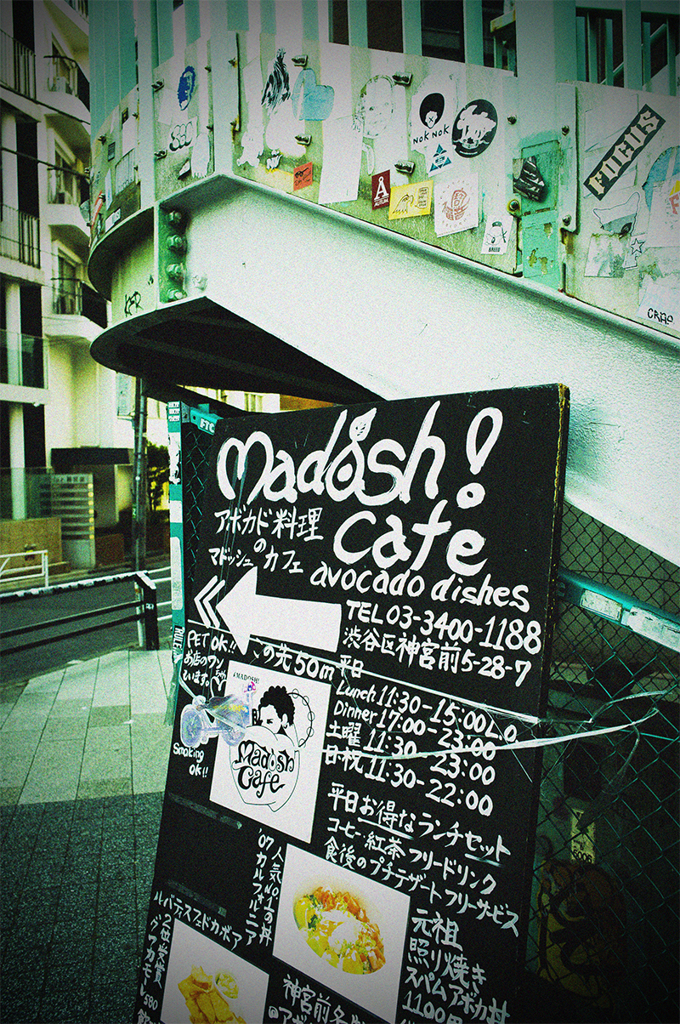 NOK NOK
FOCUS
Madosh!
cafe
アボカド料理
の
マドッシュカフェ
avocado dishes
TEL 03-3400-1188
渋谷区神宮前5-28-7
PET OK!!
この先50m
平日
Lunch 11:30-15:00 L.O
Dinner 17:00-23:00
土曜 11:30-23:00
日・祝 11:30-22:00
Smoking
OK!!
Madosh!
Cafe
平日お得なランチセット
コーヒー・紅茶フリードリンク
食後のプチデザートフリーサービス
人気No.1の丼
'07カルフォルニア
アボカドフェスティバル
2位受賞
グアカモーレ
580
元祖
照り焼き
スパムアボカ丼
1100円
神宮前名